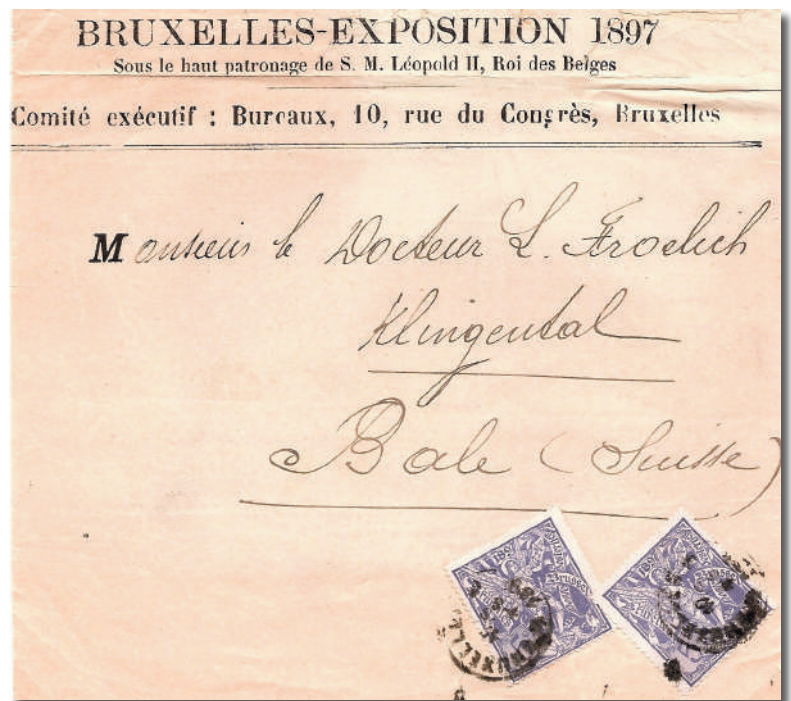 BRUXELLES-EXPOSITION 1897
Sous le haut patronage de S. M. Léopold II, Roi des Belges
Comité exécutif : Bureaux, 10, rue du Congrès, Bruxelles
Monsieur le Docteur L. Froelich
Klingental
Bale (Suisse)
1897
Brussel
BRUXELLES
1897
Brussel